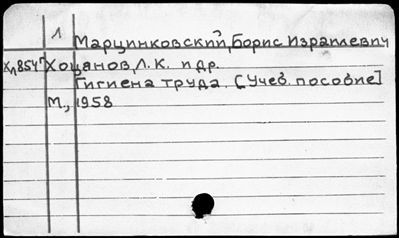 Л Марцинковский, Борис Израилевич
Х,854 Хоцанов, Л. К. и др.
Гигиена труда. [Учеб. пособие]
М., 1958